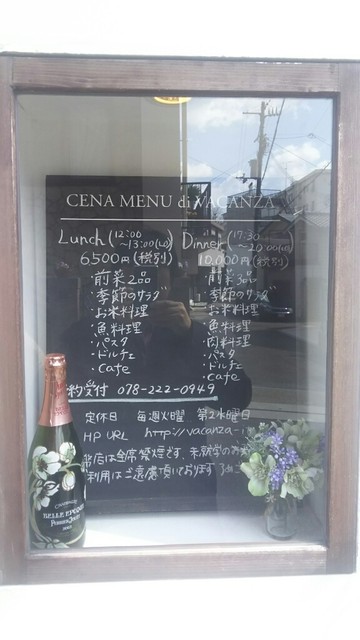 CENA MENU di VACANZA
Lunch (12:00～13:00(LO)) Dinner (17:30～20:00(LO))
6500円(税別) 10,000円(税別)
・前菜2品 ・前菜3品
・季節のサラダ ・季節のサラダ
・お米料理 ・お米料理
・魚料理 ・魚料理
・パスタ ・肉料理
・ドルチェ ・パスタ
・cafe ・ドルチェ
・cafe
約受付 078-222-0949
定休日 毎週火曜 第2水曜日
HP URL http://vacanza-
店は全席禁煙です。未就学のお
利用はご遠慮頂いております
CHAMPAGNE
BELLE EPOQUE
PERRIER-JOUËT